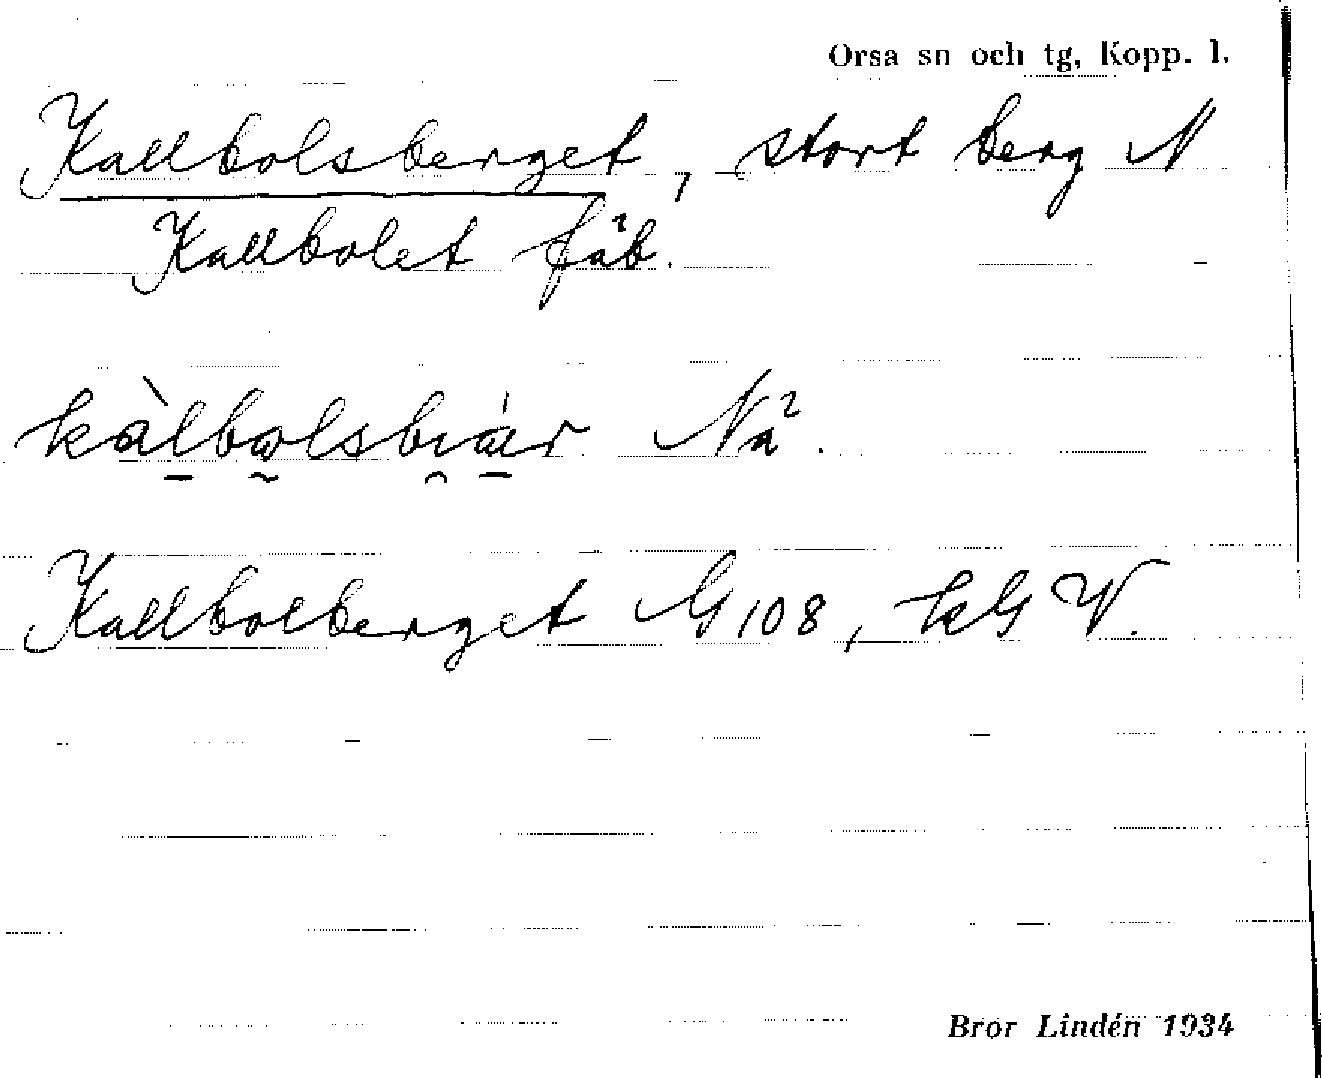 Orsa sn och tg, Kopp. l.
Kallbolsberget, stort berg N
Kallbolet fäb.
kàlbolsbıár Nä².
Kallbolberget G 108, hG V.
Bror Lindén 1934